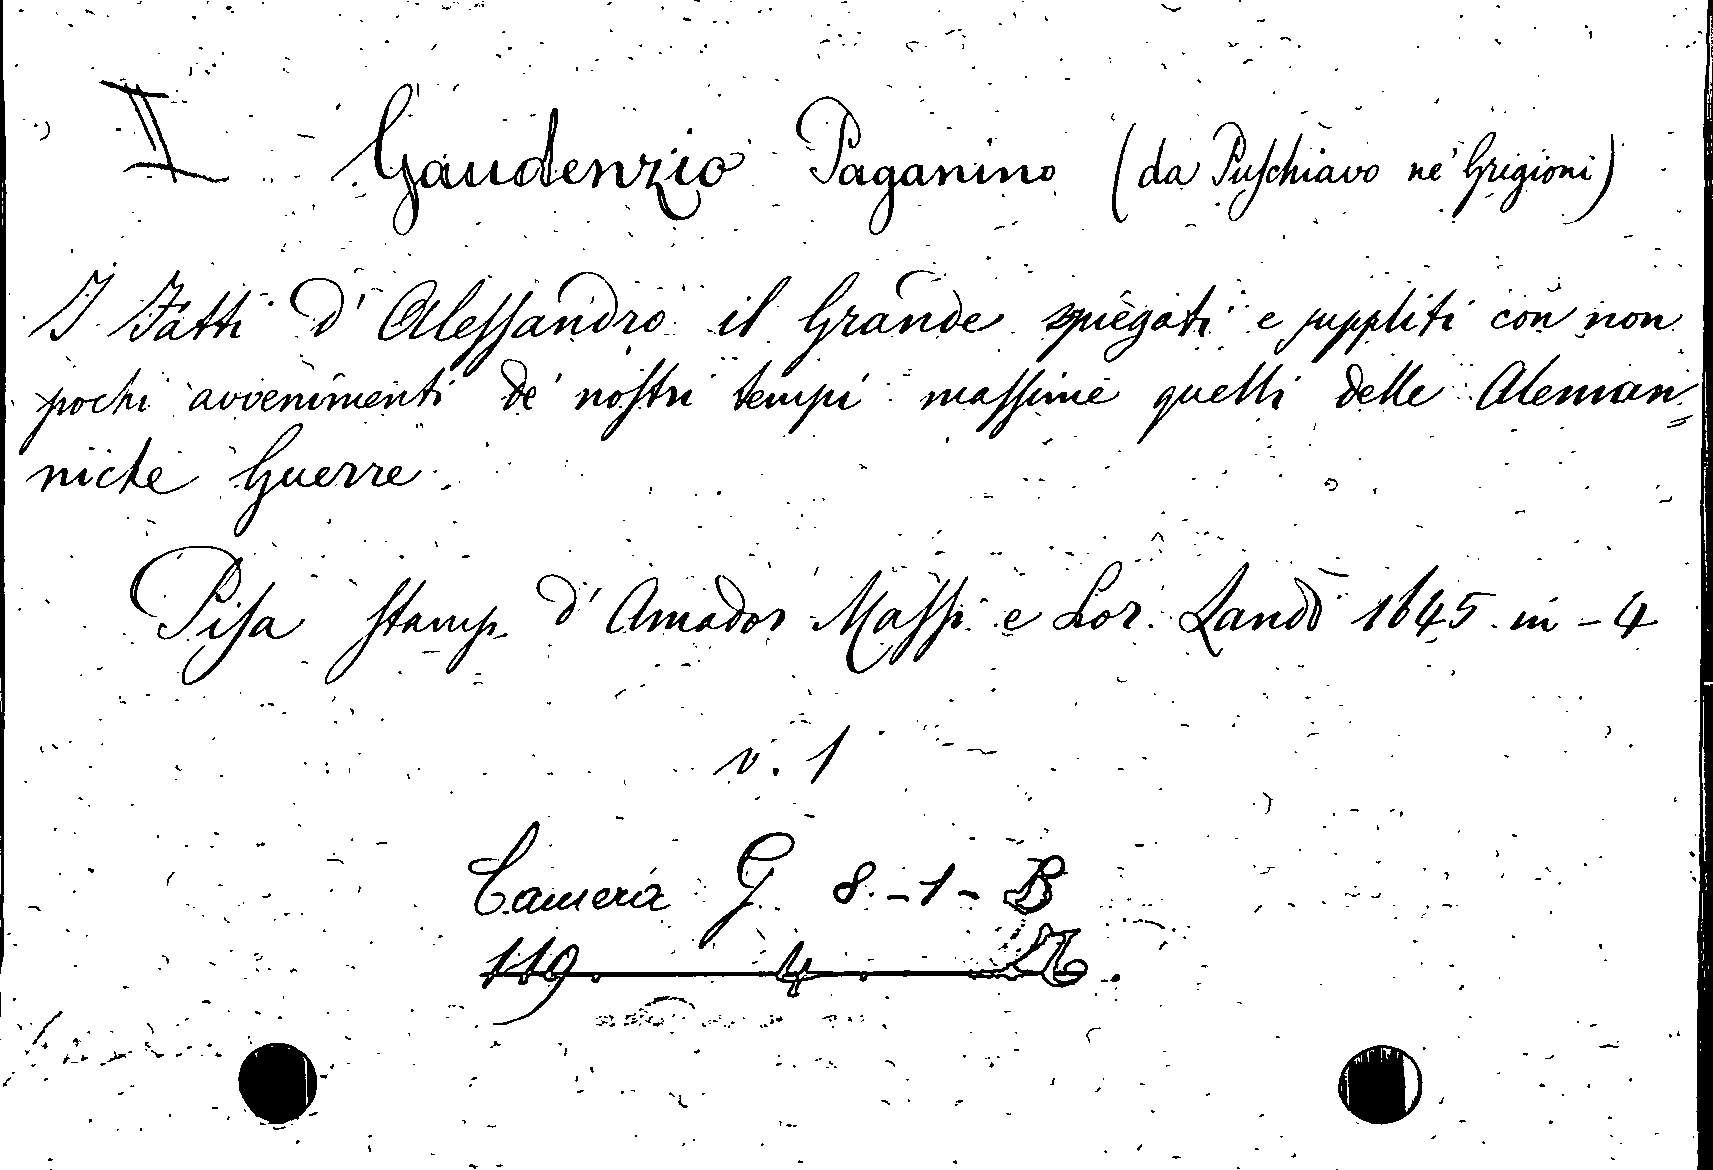 II Gaudenzio Paganino (da Puschiavo ne' Grigioni)
I Fatti d' Alessandro il Grande spiegati e suppliti con non
pochi avvenimenti de' nostri tempi massime quelli delle Aleman=
niche Guerre.
Pisa stamp. d' Amador Massi e Lor. Landi 1645 in-4
v. 1
Camera G. 8.-1-B
119. 4.